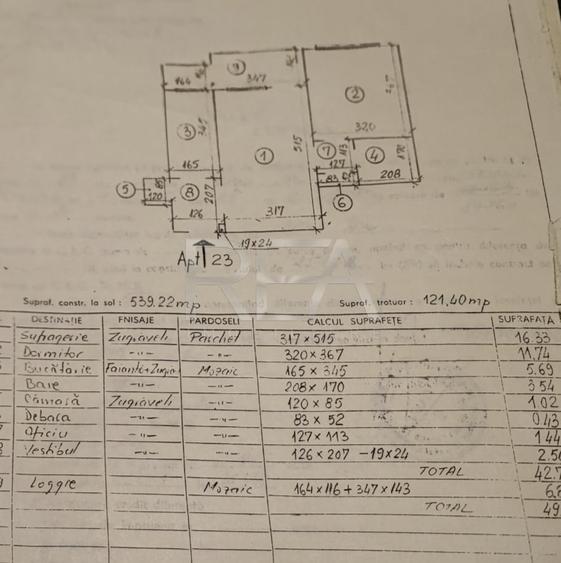 9
164
347
3
345
1
515
2
367
320
7
113
127
4
170
208
83
52
6
5
85
120
165
8
207
126
317
19x24
Apt 23
REA
Supraf. constr. la sol : 539.22mp Supraf. trotuar : 121,40mp
DESTINAȚIE FINISAJE PARDOSELI CALCUL SUPRAFEȚE SUPRAFAȚA
Sufragerie Zugrăveli Parchet 317 x 515 16.33
Dormitor -"- -"- 320 x 367 11.74
Bucătărie Faianță+Zugra Mozaic 165 x 345 5.69
Baie -"- -"- 208 x 170 3.54
Cămară Zugrăveli -"- 120 x 85 1.02
Debara -"- -"- 83 x 52 0.43
Oficiu -"- -"- 127 x 113 1.44
Vestibul -"- -"- 126 x 207 -19x24 2.56
TOTAL 42.7
Loggie Mozaic 164 x 116 + 347 x 143 6.8
TOTAL 49